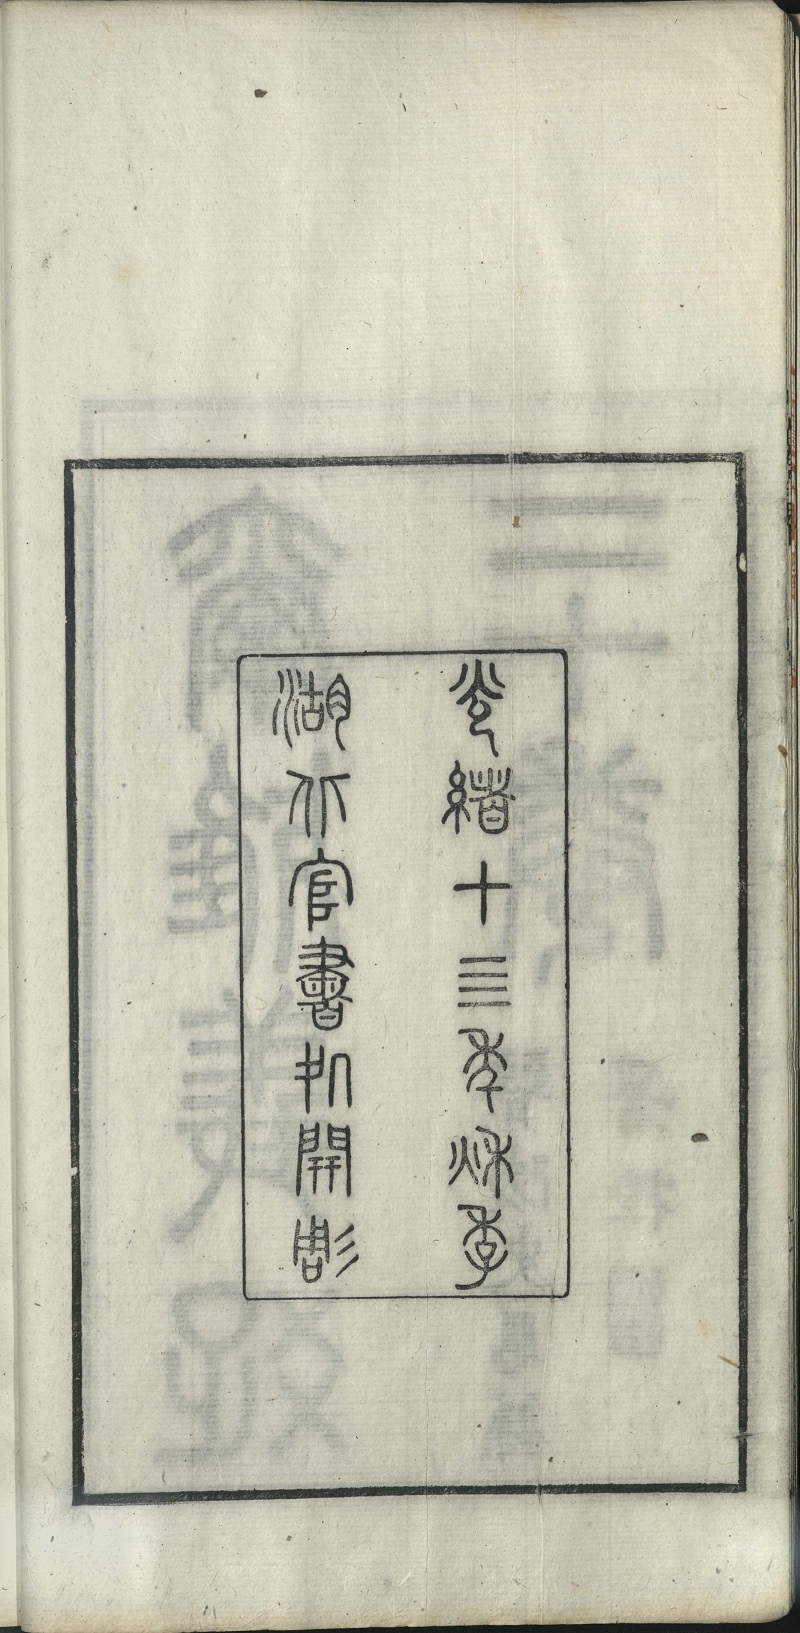 光緒十三年秋季
湖北官書処開雕